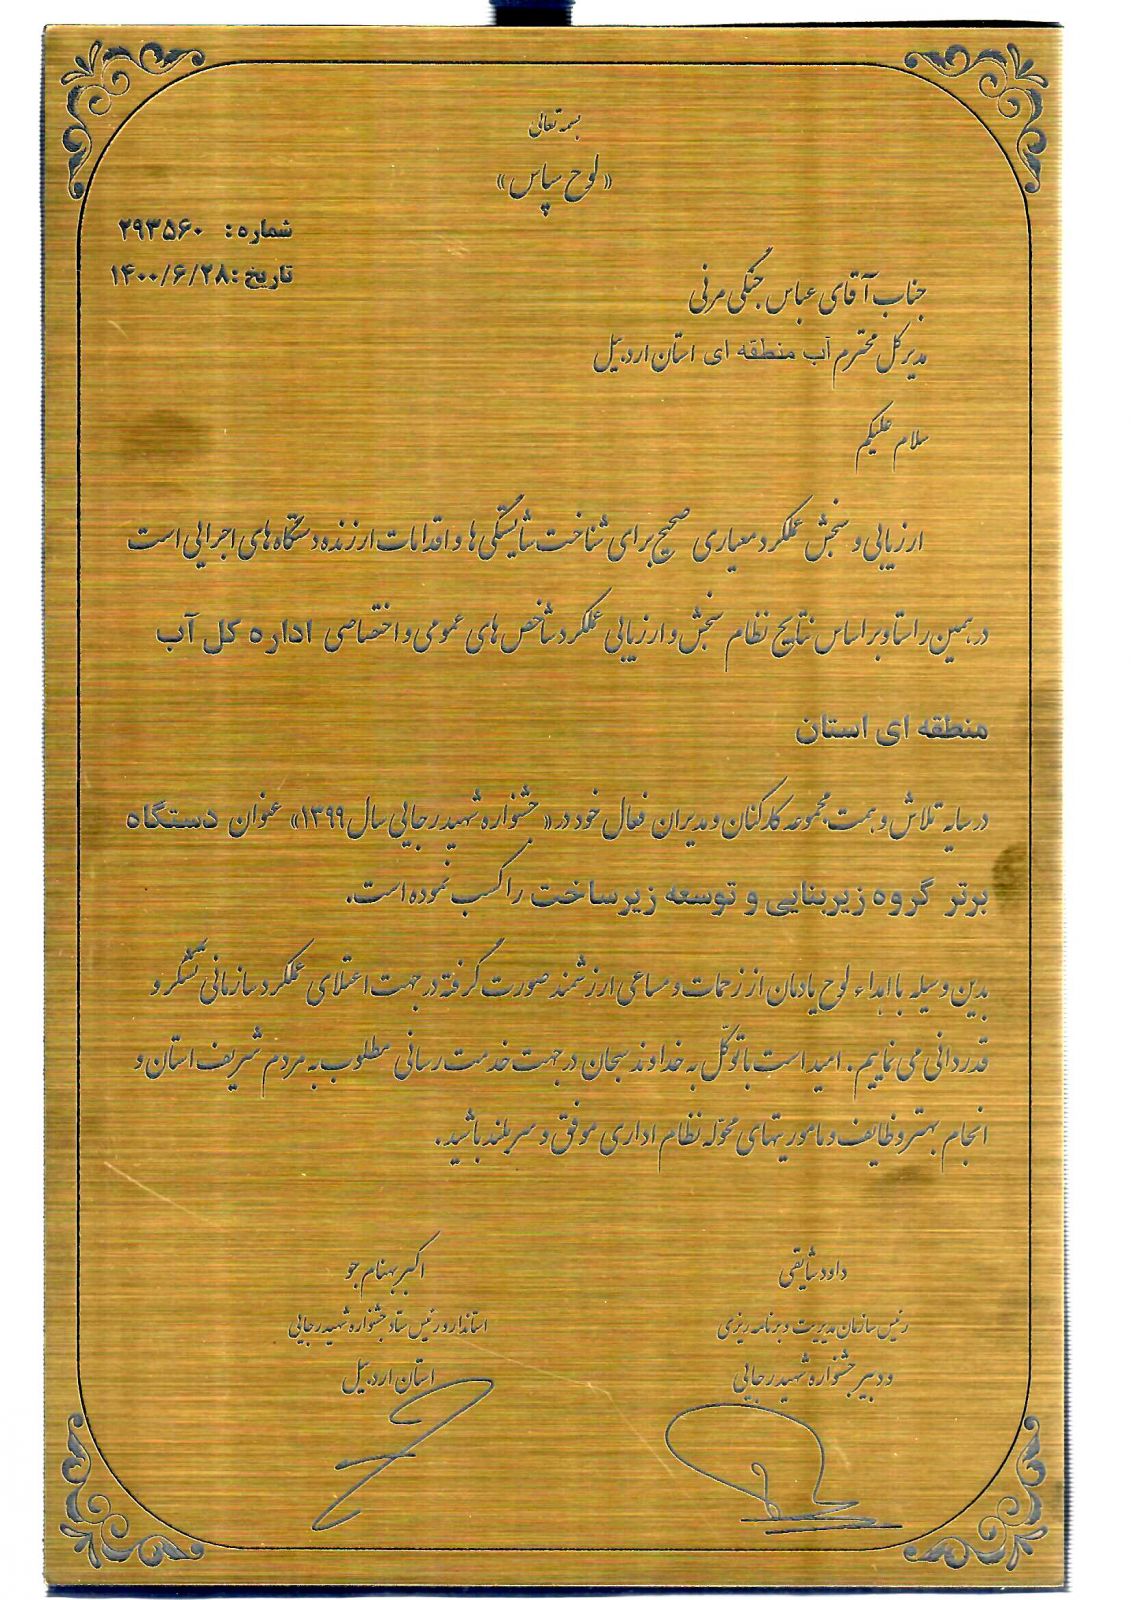 بسمه تعالی
«لوح سپاس»
شماره: ۲۹۳۵۶۰
تاریخ: ۱۴۰۰/۶/۲۸
جناب آقای عباس جنگی مرنی
مدیرکل محترم آب منطقه ای استان اردبیل
سلام علیکم
ارزیابی و سنجش عملکرد معیاری صحیح برای شناخت شایستگی ها و اقدامات ارزنده دستگاه های اجرایی است
در همین راستا و بر اساس نتایج نظام سنجش و ارزیابی عملکرد شاخص های عمومی و اختصاصی اداره کل آب
منطقه ای استان
در سایه تلاش و همت مجموعه کارکنان و مدیران فعال خود در «جشنواره شهید رجایی سال ۱۳۹۹» عنوان دستگاه
برتر گروه زیربنایی و توسعه زیرساخت را کسب نموده است.
بدین وسیله با اهداء لوح یادمان از زحمات و مساعی ارزشمند صورت گرفته در جهت اعتلای عملکرد سازمانی تشکر و
قدردانی می نماییم. امید است با توکّل به خداوند سبحان در جهت خدمت رسانی مطلوب به مردم شریف استان و
انجام بهتر وظایف و ماموریتهای محوّله نظام اداری موفق و سربلند باشید.
داود شایقی
رئیس سازمان مدیریت و برنامه ریزی
و دبیر جشنواره شهید رجایی
اکبر بهنام جو
استاندار و رئیس ستاد جشنواره شهید رجایی
استان اردبیل